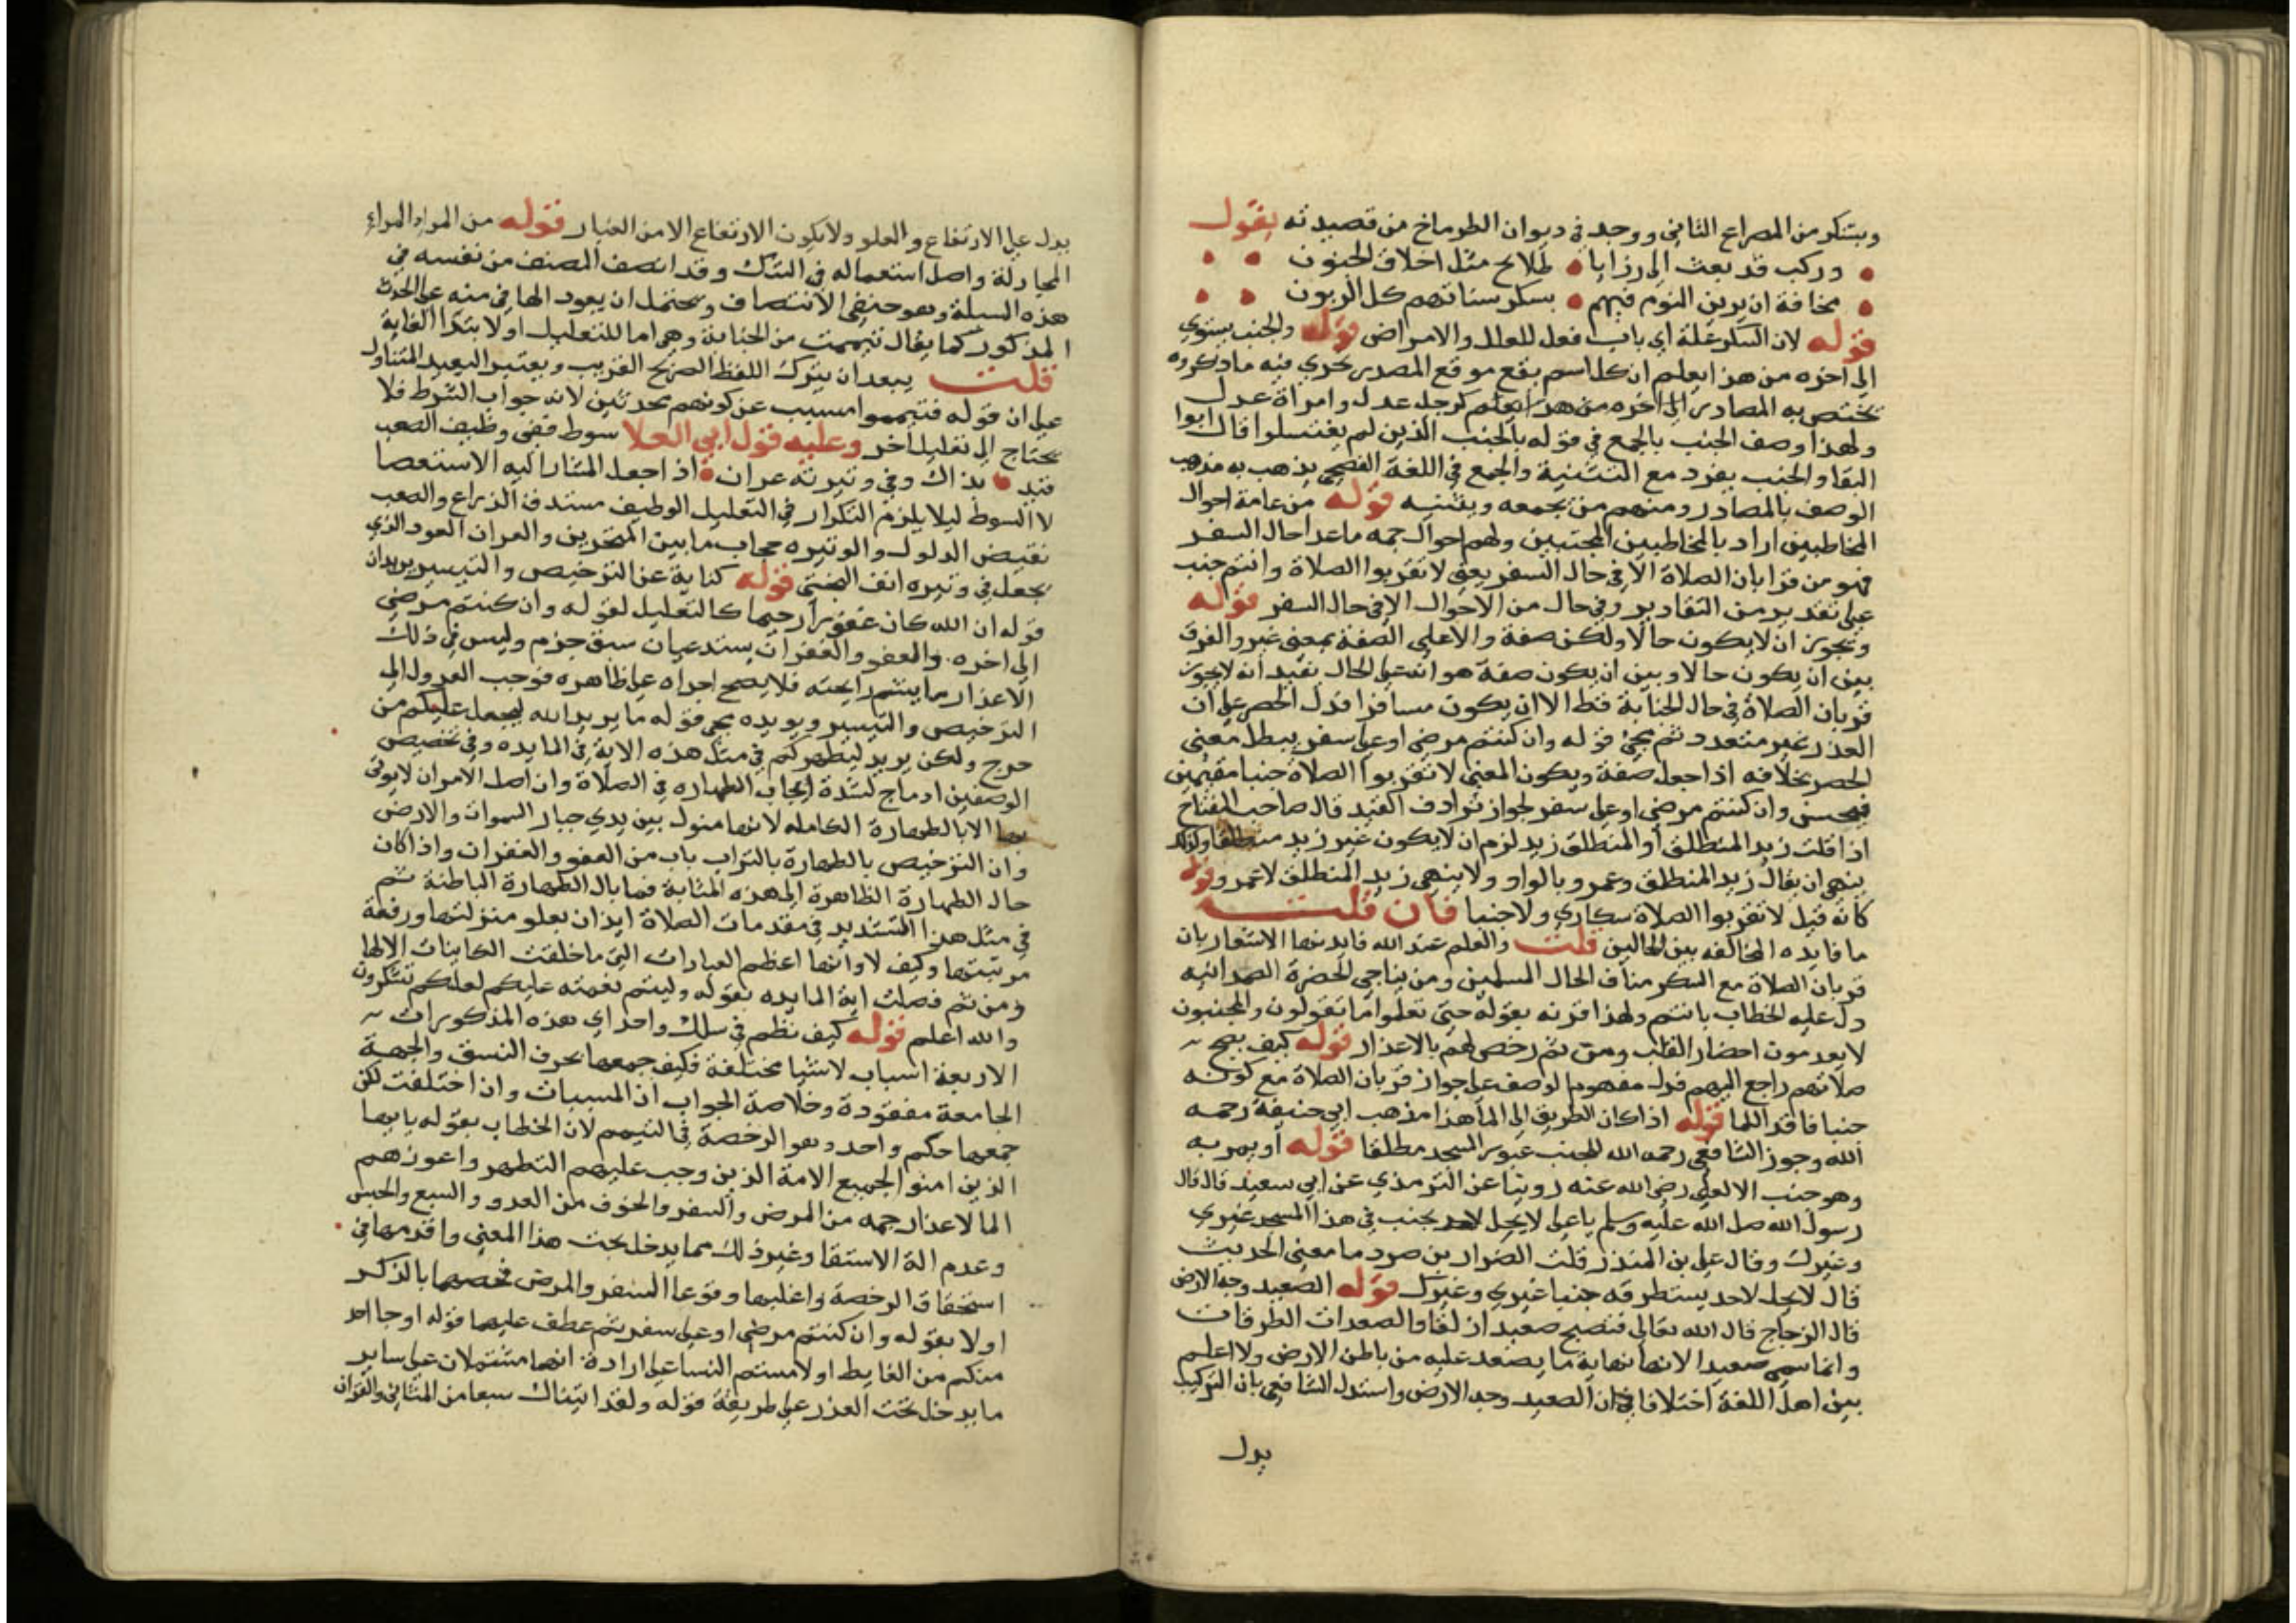 ويستكر من المصراع الثاني ووجد في ديوان الطرماخ من قصيدته يقول
وركب قد بعثت الى رزايا طلايح مثل اخلاق الجنون
مخافة ان يرين النوم فيهم بسكر سناتهم كل الريون
قوله لان السكر علة اي باب فعل للعلل والامراض قوله والجنب يستوي
الى اخره من هذا يعلم ان كل اسم يقع موقع المصدر يجري فيه ما ذكروه
تختص به المصادر الى اخره من هذا يعلم كرجل عدل وامراة عدل
ولهذا وصف الجنب بالجمع في قوله بالجنب الذين لم يغتسلوا قال ابوا
البقا والجنب يفرد مع التثنية والجمع في اللغة الفصحى يذهب به مذهب
الوصف بالمصادر ومنهم من يجمعه ويثنيه قوله من عامة احوال
المخاطبين اراد بالمخاطبين المجتنبين ولهم احوال جمه ما عدا حال السفر
فهو من قرابان الصلاة الا في حال السفر يعني لا تقربوا الصلاة وانتم جنب
على تقدير من التقادير وفي حال من الاحوال الا في حال السفر قوله
ويجوز ان لا يكون حالا ولكن صفة والا على الصفة بمعنى غير والفرق
بين ان يكون حالا وبين ان يكون صفة هو انه على الحال يفيد انه لا يجوز
قربان الصلاة في حال الجنابة قط الا ان يكون مسافرا فدل الحصر على ان
العذر غير متعدد ثم يجئ قوله وان كنتم مرضى او على سفر يبطل معنى
الحصر بخلافه اذا جعل صفة ويكون المعنى لا تقربوا الصلاة جنبا مقيمين
فيحسن وان كنتم مرضى او على سفر لجواز ترادف القيد قال صاحب المفتاح
اذا قلت زيد المنطلق او المنطلق زيد لزم ان لا يكون غير زيد منطلقا ولذلك
ينهى ان يقال زيد المنطلق وعمرو بالواو ولا ينهى زيد المنطلق لا عمرو قوله
كانه قيل لا تقربوا الصلاة سكارى ولا جنبا فان قلت
ما فايده المخالفه بين الحالين قلت والعلم عند الله فايدتها الاشعار بان
قربان الصلاة مع السكر مناف الحال المسلمين ومن يناجي لحضرة الصمدانيه
دل عليه الخطاب بانتم ولهذا قرنه بقوله حتى تعلموا ما تقولون والمجنبون
لا يعدمون احضار القلب ومن ثم رخص لهم بالاعذار قوله كيف يصح
صلاتهم راجع اليهم قول مفهوم الوصف على جواز قربان الصلاة مع كونه
جنبا فاقد الما قوله اذا كان الطريق الى الما هذا مذهب ابي حنيفة رحمه
الله وجوز الشافعي رحمه الله للجنب عبور المسجد مطلقا قوله او يمر به
وهو جنب الا لعلي رضي الله عنه روينا عن الترمذي عن ابي سعيد قال قال
رسول الله صلى الله عليه وسلم يا علي لا يحل لاحد يجنب في هذا المسجد غيري
وغيرك وقال علي بن المنذر قلت الضرار بن صرد ما معنى الحديث
قال لا يحل لاحد يستطرقه جنبا غيري وغيرك قوله الصعيد وجه الارض
قال الزجاج قال الله تعالى فتصبح صعيدا زلقا والصعدات الطرقات
وانما سمي صعيدا لانها نهاية ما يصعد عليه من باطن الارض ولا اعلم
بين اهل اللغة اختلافا في ان الصعيد وجه الارض واستدل الشافعي بان التركيب
يدل
يدل على الارتفاع والعلو ولا يكون الارتفاع الا من الغبار قوله من المراء المراء
المجادلة واصل استعماله في الشك وقد انصف المصنف من نفسه في
هذه المسلة وهو حنفي الانتصاف ويحتمل ان يعود الها في منه على الحدث
المذكور كما يقال تيممت من الجنابة وهي اما للتعليل او لابتدا الغاية
قلت يبعد ان يترك اللفظ الصريح القريب ويعتبر البعيد المتناول
على ان قوله فتيمموا مسبب عن كونهم محدثين لانه جواب الشرط فلا
يحتاج الى تعليل اخر وعليه قول ابي العلا سوط ففي وظيف الصعب
قيد بذاك وفي وتيرته عران اذا جعل المشار اليه الاستعصا
لا السوط ليلا يلزم التكرار في التعليل الوظيف مستدق الذراع والصعب
نقيض الذلول والوتيره حجاب ما بين المنخرين والعران العود الذي
يجعل في وتيره انف البختي قوله كناية عن الترخيص والتيسير يريد ان
قوله ان الله كان عفوا رحيما كالتعليل لقوله وان كنتم مرضى
الى اخره والعفو والغفران يستدعيان سبق جزم وليس في ذلك
الاعذار ما يشم رايحته فلا يصح اجراه على ظاهره فوجب العدول الى
الترخيص والتيسير ويويده مجي قوله ما يريد الله ليجعل عليكم من
حرج ولكن يريد ليطهركم في مثل هذه الاية في المايده وفي تخصيص
الوصفين ادماج لشدة ايجاب الطهاره في الصلاة وان اصل الامر ان لا يوتى
بها الا بالطهارة الكامله لانها مثول بين يدي جبار السموات والارض
وان الترخيص بالطهارة بالتراب باب من العفو والغفران واذا كان
حال الطهارة الظاهرة الى هذه المثابة فما بال الطهارة الباطنة ثم
في مثل هذا التشديد في مقدمات الصلاة ايذان بعلو منزلتها ورفعة
مرتبتها وكيف لا وانها اعظم العبادات التي ما خلقت الكاينات الا لها
ومن ثم فصلت اية المايده بقوله وليتم نعمته عليكم لعلكم تشكرون
والله اعلم قوله كيف نظم في سلك واحد اي هذه المذكورات
الاربعة اسباب لاشيا مختلفة فكيف جمعها بحرف النسق والجهة
الجامعة مفقودة وخلاصة الجواب ان المسببات وان اختلفت لكن
جمعها حكم واحد وهو الرخصة في التيمم لان الخطاب بقوله يا ايها
الذين امنوا لجميع الامة الذين وجب عليهم التطهر واعوزهم
الما لاعذار جمه من المرض والسفر والخوف من العدو والسبع والحبس
وعدم الة الاستقا وغير ذلك مما يدخل تحت هذا المعنى واقدمها في
استحقاق الرخصة واغلبها وقوعا السفر والمرض فخصهما بالذكر
اولا بقوله وان كنتم مرضى او على سفر ثم عطف عليهما قوله او جا احد
منكم من الغايط او لامستم النسا على ارادة انهما مشتملان على ساير
ما يدخل تحت العذر على طريقة قوله ولقد اتيناك سبعا من المثاني والقران